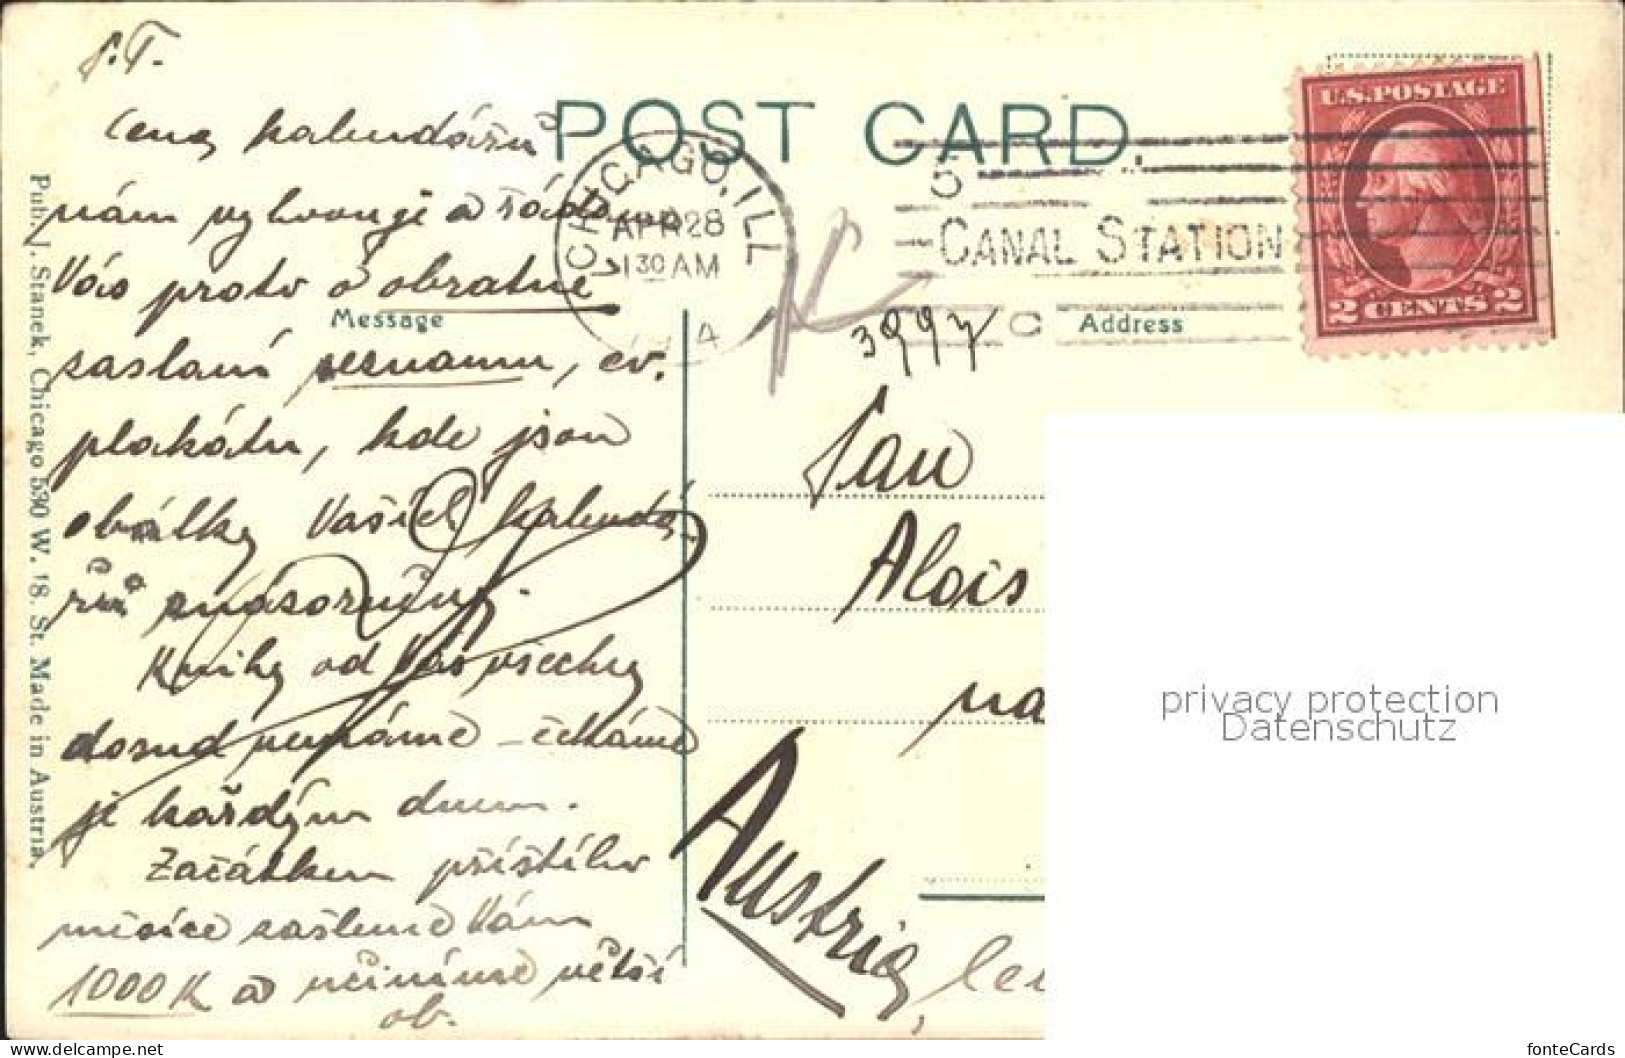 P.T.
Cena kalendářů
nám vyhovuje a žádáme
Vás proto o obratné
zaslání seznamu, ev.
plakátu, kde jsou
obálky Vašich kalendá-
řů znázorněny.
Knihy od Vás všechny
dosud nemáme – čekáme
je každým dnem.
Začátkem příštího
měsíce zašleme Vám
1000 K a učiníme větší
ob.
Pub. J. Stanek, Chicago 530 W. 18. St. Made in Austria.
POST CARD.
Message
Address
CHICAGO, ILL
APR 28
1 30 AM
5
CANAL STATION
C
U.S. POSTAGE
2 CENTS 2
3997
Pan
Alois
na
Austria,
privacy protection
Datenschutz
https://www.delcampe.net/en_US/collectibles/
fonteCards